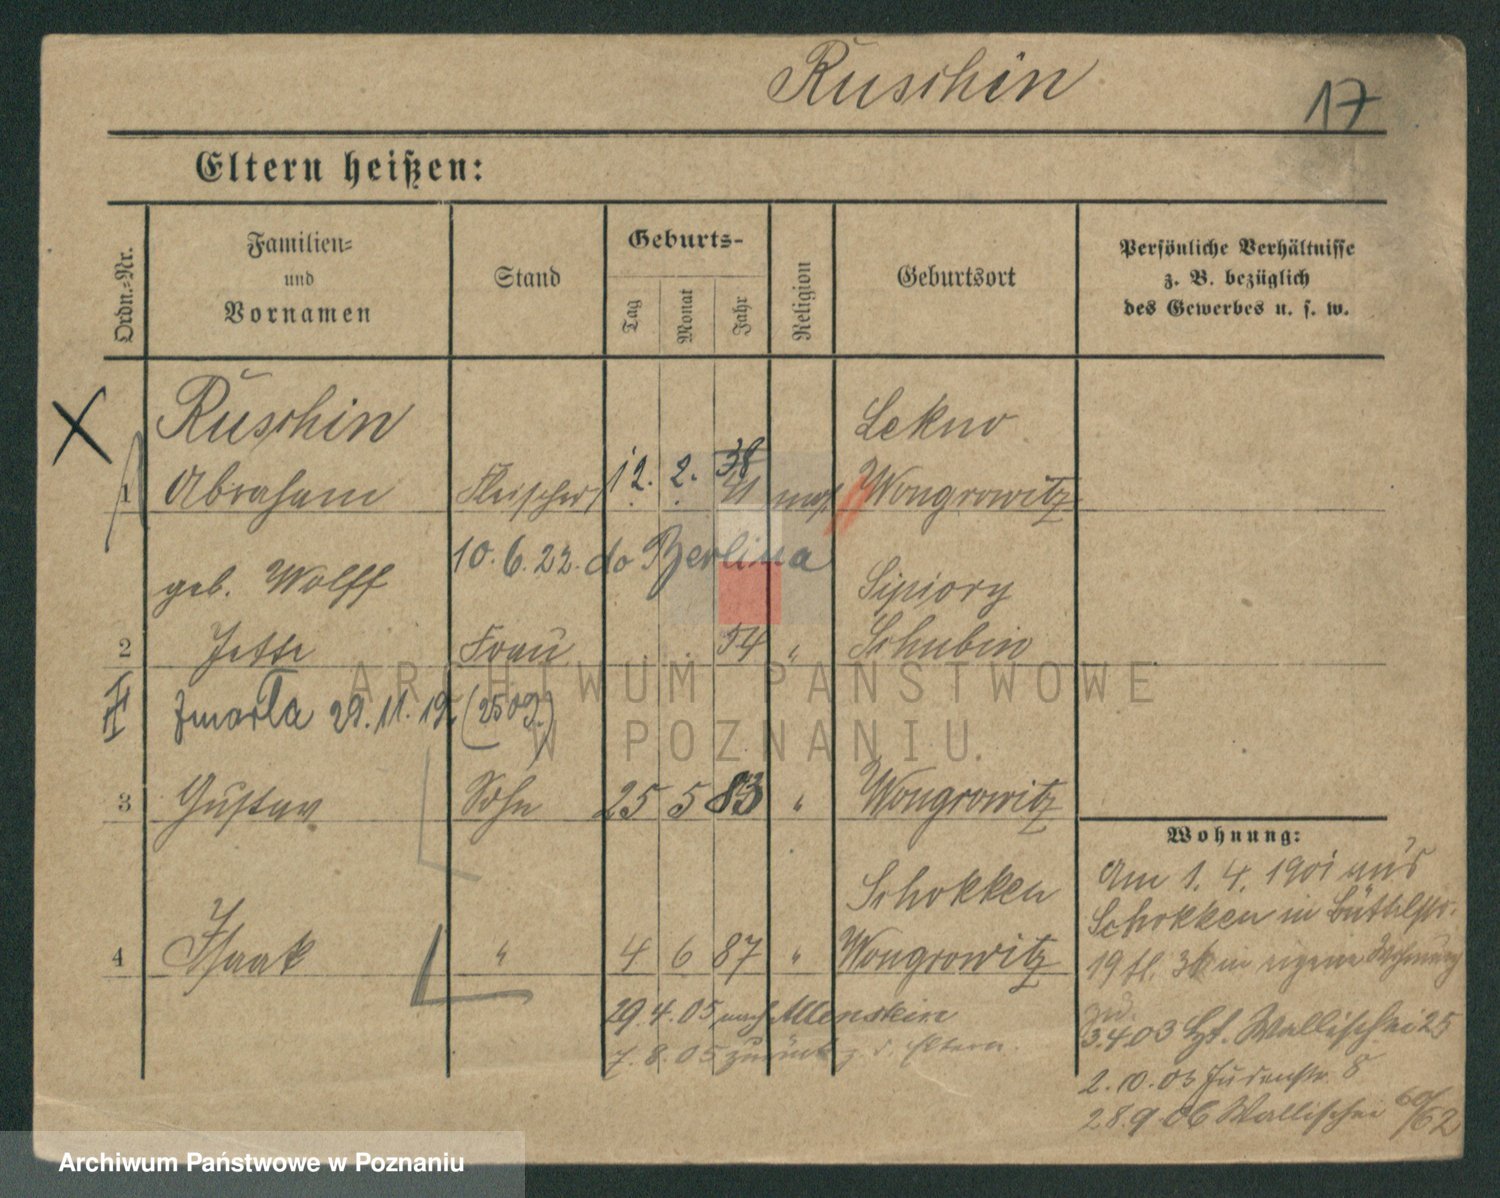 Ruschin
17
Eltern heißen:
Ordn.=Nr.
Familien=
und
Vornamen
Stand
Geburts-
Tag
Monat
Jahr
Religion
Geburtsort
Persönliche Verhältnisse
z. B. bezüglich
des Gewerbes u. s. w.
Ruschin
Lekno
1 Abraham Fleischer 12. 2. 38 mos. Wongrowitz
10. 6. 22. do Berlina
geb. Wolff Sipiory
2 Jette Frau 54 " Schubin
zmarła 29. 11. 19. (2509.)
3 Gustav Sohn 25 5 83 " Wongrowitz
Schokken
4 Isaak " 4 6 87 " Wongrowitz
29. 4. 05 nach Allenstein
7. 8. 05 zurück z. d. Eltern.
Wohnung:
Am 1. 4. 1901 aus
Schokken in
19 in eigene Wohnung
zu.
3.4.03 Wallischei 25
2. 10. 03 Judenstr. 8
28.9.06 Wallischei 60/62
ARCHIWUM PAŃSTWOWE
W POZNANIU
Archiwum Państwowe w Poznaniu